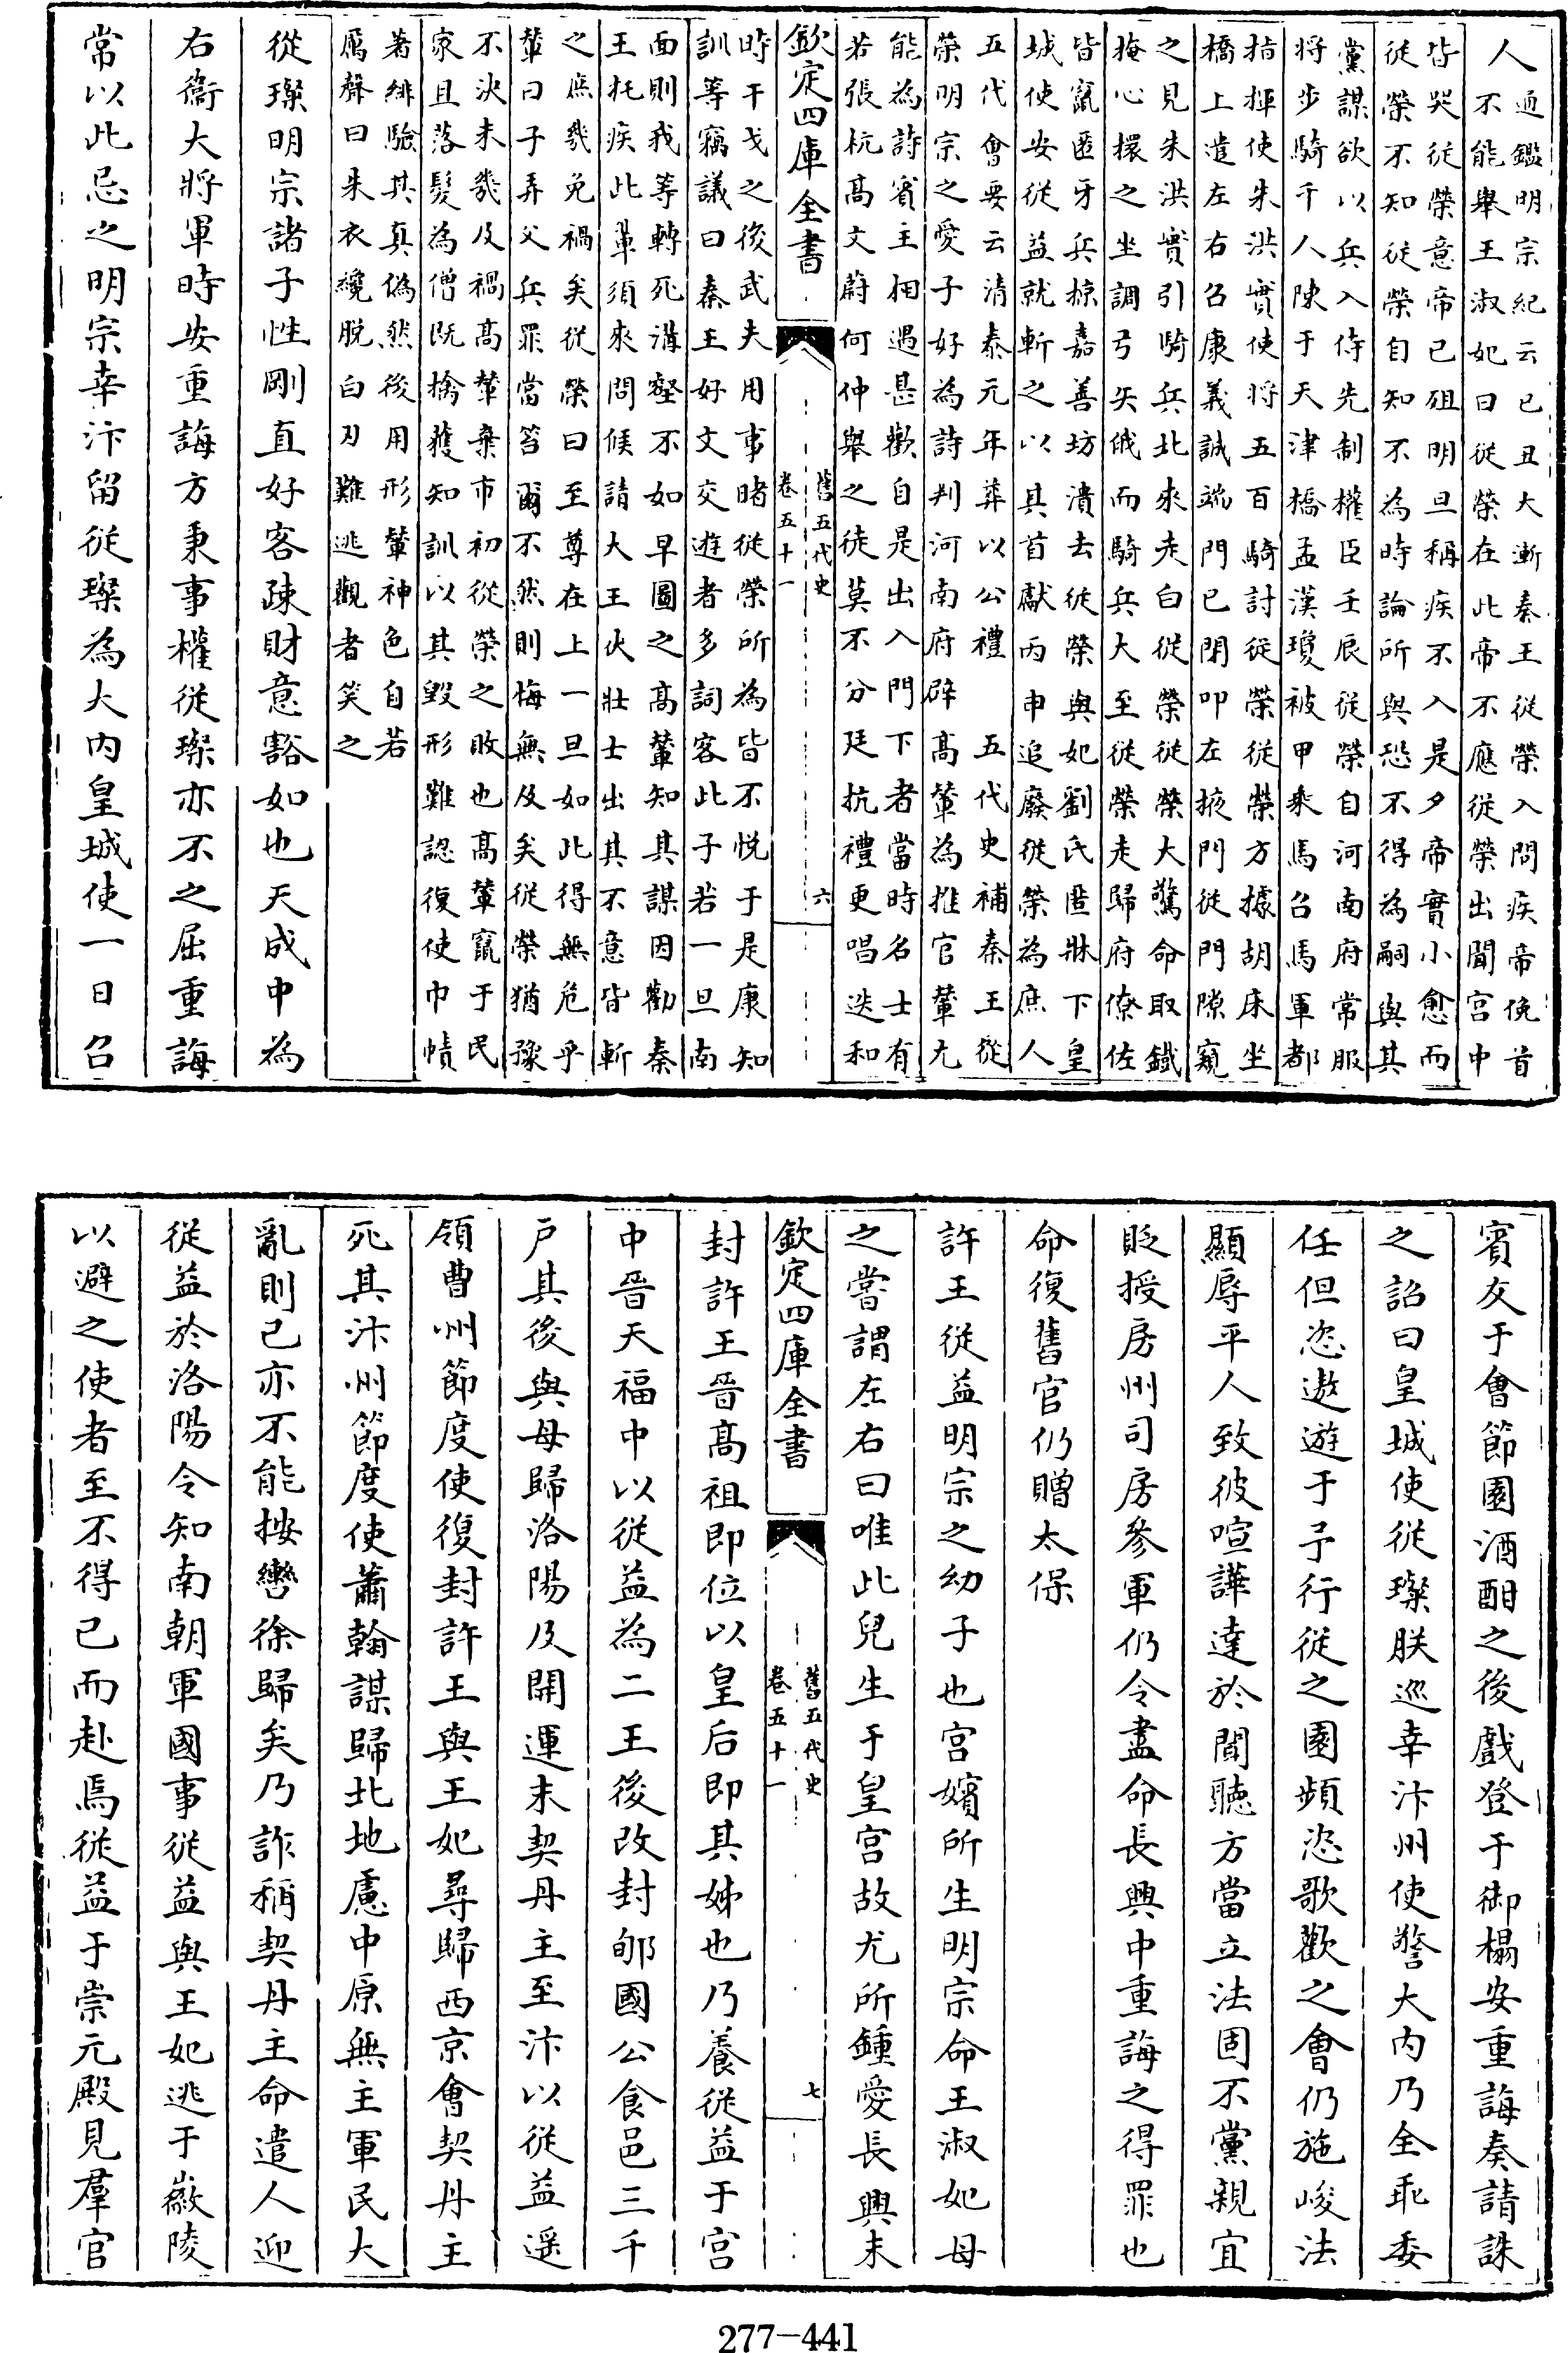 人
通鑑明宗紀云已丑大漸秦王從榮入問疾帝俛首
不能舉王淑妃曰從榮在此帝不應從榮出聞宫中
皆哭從榮意帝已殂明旦稱疾不入是夕帝實小愈而
從榮不知從榮自知不為時論所與恐不得為嗣與其
黨謀欲以兵入侍先制權臣壬辰從榮自河南府常服
将步騎千人陳于天津橋孟漢瓊被甲乘馬召馬軍都
指揮使朱洪實使将五百騎討從榮從榮方據胡床坐
橋上遣左右召康義誠端門已閉叩左掖門從門隙窺
之見朱洪實引騎兵北來走白從榮從榮大驚命取鐡
掩心擐之坐調弓矢俄而騎兵大至從榮走歸府僚佐
皆竄匿牙兵掠嘉善坊潰去從榮與妃劉氏匿牀下皇
城使安從益就斬之以其首獻丙申追廢從榮為庶人
五代會要云清泰元年葬以公禮　五代史補秦王從
榮明宗之愛子好為詩判河南府辟髙輦為推官輦尤
能為詩賓主相遇甚歡自是出入門下者當時名士有
若張杭髙文蔚何仲舉之徒莫不分廷抗禮更唱迭和
欽定四庫全書
舊五代史
卷五十一
六
時干戈之後武夫用事睹從榮所為皆不悦于是康知
訓等竊議曰秦王好文交遊者多詞客此子若一旦南
面則我等轉死溝壑不如早圖之髙輦知其謀因勸秦
王托疾此輩須來問候請大王伏壯士出其不意皆斬
之庶幾免禍矣從榮曰至尊在上一旦如此得無危乎
輦曰子弄父兵罪當笞爾不然則悔無及矣從榮猶豫
不決未幾及禍髙輦棄市初從榮之敗也髙輦竄于民
家且落髮為僧既擒獲知訓以其毀形難認復使巾幘
著緋驗其真偽然後用形輦神色自若
厲聲曰朱衣纔脱白刃難逃觀者笑之
從璨明宗諸子性剛直好客疎財意豁如也天成中為
右衞大將軍時安重誨方秉事權從璨亦不之屈重誨
常以此忌之明宗幸汴留從璨為大内皇城使一日召
賓友于會節園酒酣之後戲登于御榻安重誨奏請誅
之詔曰皇城使從璨朕巡幸汴州使警大内乃全乖委
任但恣遨遊于予行從之園頻恣歌歡之會仍施峻法
顯辱平人致彼喧譁達於聞聽方當立法固不黨親宜
貶授房州司房參軍仍令盡命長興中重誨之得罪也
命復舊官仍贈太保
許王從益明宗之幼子也宫嬪所生明宗命王淑妃母
之嘗謂左右曰唯此兒生于皇宫故尤所鍾愛長興末
欽定四庫全書
舊五代史
卷五十一
七
封許王晉髙祖即位以皇后即其姊也乃養從益于宫
中晉天福中以從益為二王後改封郇國公食邑三千
户其後與母歸洛陽及開運末契丹主至汴以從益遥
領曹州節度使復封許王與王妃尋歸西京會契丹主
死其汴州節度使蕭翰謀歸北地慮中原無主軍民大
亂則己亦不能按轡徐歸矣乃詐稱契丹主命遣人迎
從益於洛陽令知南朝軍國事從益與王妃逃于徽陵
以避之使者至不得已而赴焉從益于崇元殿見羣官
277-441